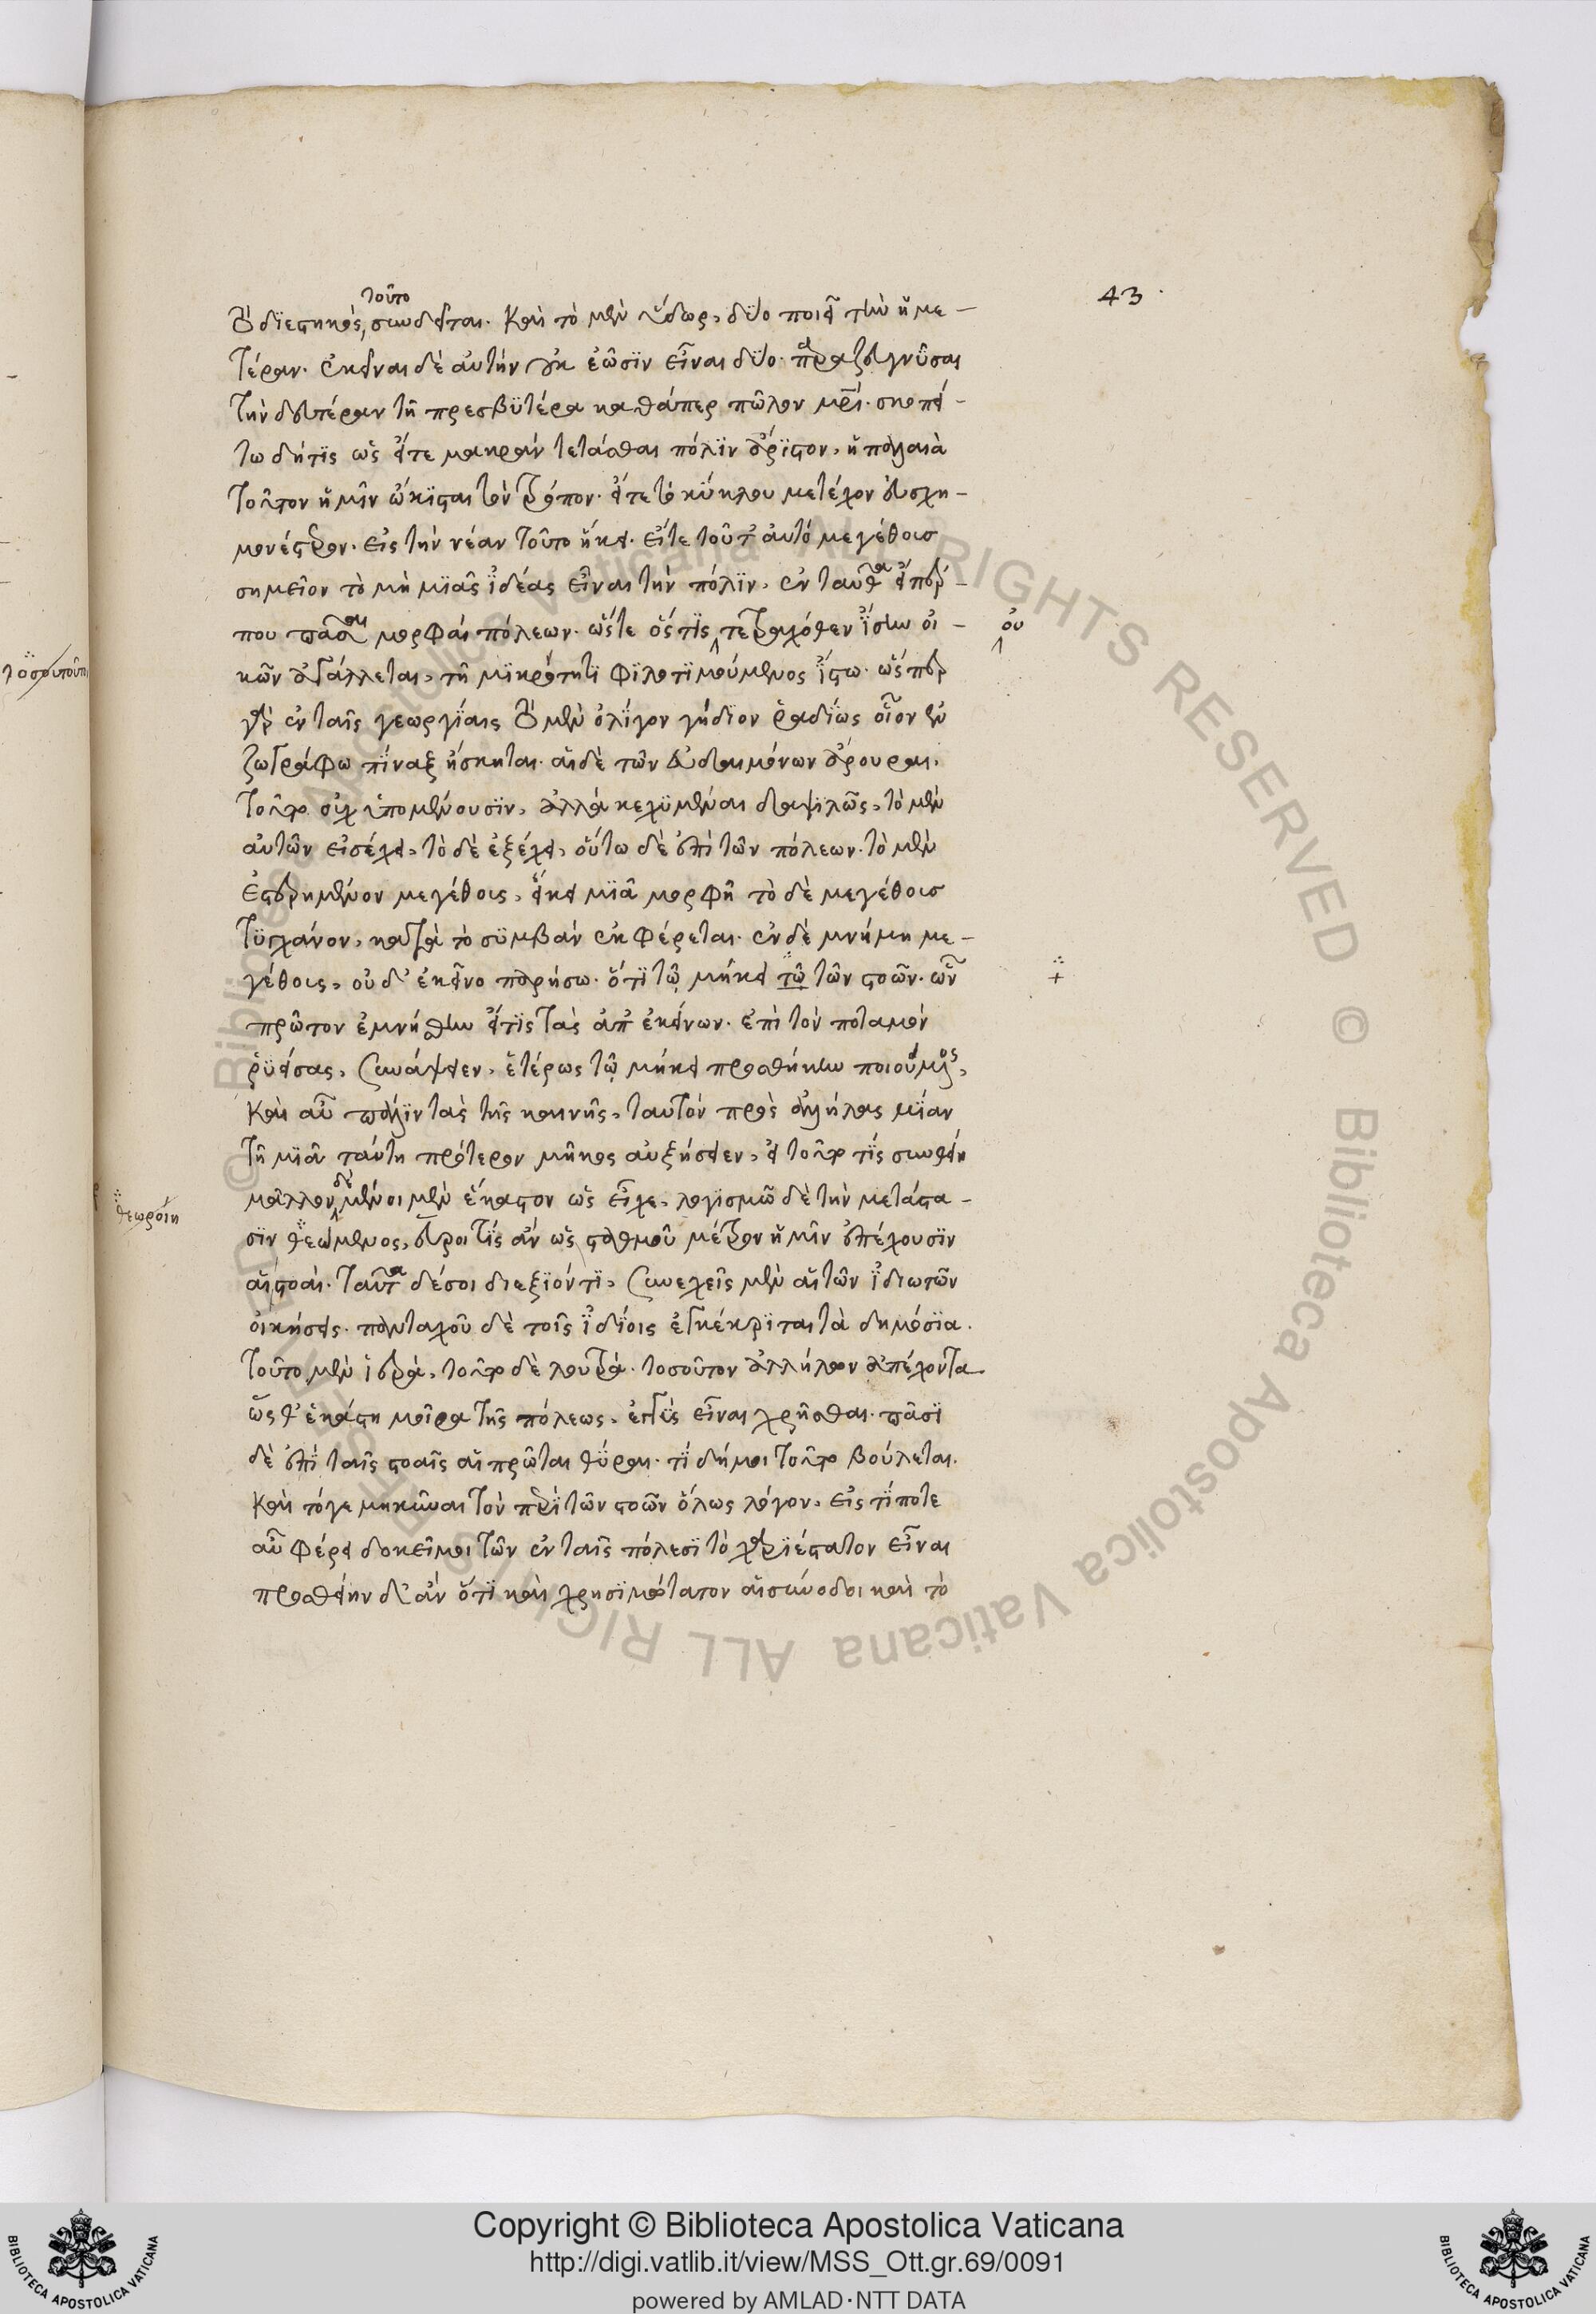 43
τοῦτο
ὃ διεστηκὸς, συνδεῖται. Καὶ τὸ μὲν ὕδωρ, δύο ποιεῖ τὴν ἡμε-
τέραν. ἐκεῖναι δὲ αὐτὴν οὐκ ἐῶσιν εἶναι δύο. παραζευγνῦσαι
τὴν δευτέραν τῆ πρεσβυτέρα καθάπερ πῶλον μρί. σκοπεί-
τω δή τις ὡς εἴτε μακρὰν τετάσθαι πόλιν ἄριστον, ἡ παλαιὰ
τοῦτον ἡμῖν ᾤκισται τὸν τρόπον. εἴτε τὸ κύκλου μετέχον εὐσχη-
μονέστερον. εἰς τὴν νέαν τοῦτο ἥκει. εἴτε τοῦτ' αὐτὸ μεγέθους
σημεῖον τὸ μὴ μιᾶς ἰδέας εἶναι τὴν πόλιν, ἐνταῦθα εἴπερ-
που πᾶσαι μορφαὶ πόλεων. ὥστε ὅστις τετραχόθεν ἴσην οἰ-
οὐ
κῶν ἀγάλλεται, τῆ μικρότητι φιλοτιμούμενος ἴστω. ὥσπερ
γὰρ ἐν ταῖς γεωργίαις ὃ μὲν ὀλίγον γήδιον ῥαδίως οἷον ἐν
ζωγράφω πίναξ ἤσκηται. αἱ δὲ τῶν εὐδαιμόνων ἄρουραι,
τοῦτο οὐχ ὑπομένουσιν, ἀλλὰ κεχυμέναι δαψιλῶς, τὸ μὲν
αὐτῶν εἰσέχει, τὸ δὲ ἐξέχει, οὕτω δὲ ἐπὶ τῶν πόλεων. τὸ μὲν
ἐστερημένον μεγέθους, εἴκει μιᾶ μορφῆ τὸ δὲ μεγέθους
τυγχάνον, κατὰ τὸ συμβὰν ἐκφέρεται. ἐν δὲ μνήμη με-
γέθους, οὐδ' ἐκεῖνο παρήσω. ὅτι τῷ μήκει τῷ τῶν στοῶν. ὧν
πρῶτον ἐμνήσθην εἴ τις τὰς ἀπ' ἐκείνων. ἐπὶ τὸν ποταμὸν
ῥυείσας, συνάψειεν, ἑτέρως τῷ μήκει προσθήκην ποιούμενος,
Καὶ αὖ πάλιν τὰς τῆς καινῆς, ταυτὸν πρὸς ἀλλήλας μίαν
τῆ μιᾶ ταύτη πρότερον μῆκος αὐξήσειεν, εἰ τοῦτό τις συνθείη
μᾶλλον δὲ μένοι μὲν ἕκαστον ὡς εἶχε, λογισμῶ δὲ τὴν μετάστα-
θεωροίη
σιν θεώμενος, εὕροι τις ἂν ὡς σταθμοῦ μέτρον ἡμῖν ἐπέχουσιν
αἱ στοαί. ταῦτα δέ σοι διεξιόντι, συνεχεῖς μὲν αἱ τῶν ἰδιωτῶν
οἰκήσεις. πανταχοῦ δὲ τοῖς ἰδίοις ἐγκέκριται τὰ δημόσια.
τοῦτο μὲν ἱερά, τοῦτο δὲ λουτρά. τοσοῦτον ἀλλήλων ἀπέχοντα
ὥσθ' ἑκάστη μοῖρα τῆς πόλεως, ἐγγὺς εἶναι χρῆσθαι. πᾶσι
δὲ ἐπὶ ταῖς στοαῖς αἱ πρῶται θύραι. τί δή μοι τοῦτο βούλεται.
Καὶ τό γε μηκῦναι τὸν περὶ τῶν στοῶν ὅλως λόγον, εἰς τί ποτε
αὖ φέρει δοκεῖ μοι τῶν ἐν ταῖς πόλεσι τὸ χαριέστατον εἶναι
προσθείην δ' ἂν ὅτι καὶ χρησιμώτατον αἱ σύνοδοι καὶ τὸ
Copyright © Biblioteca Apostolica Vaticana
http://digi.vatlib.it/view/MSS_Ott.gr.69/0091
powered by AMLAD·NTT DATA
BIBLIOTECA APOSTOLICA VATICANA
BIBLIOTECA APOSTOLICA VATICANA
© Biblioteca Apostolica Vaticana ALL RIGHTS RESERVED © Biblioteca Apostolica Vaticana ALL RIGHTS RESERVED